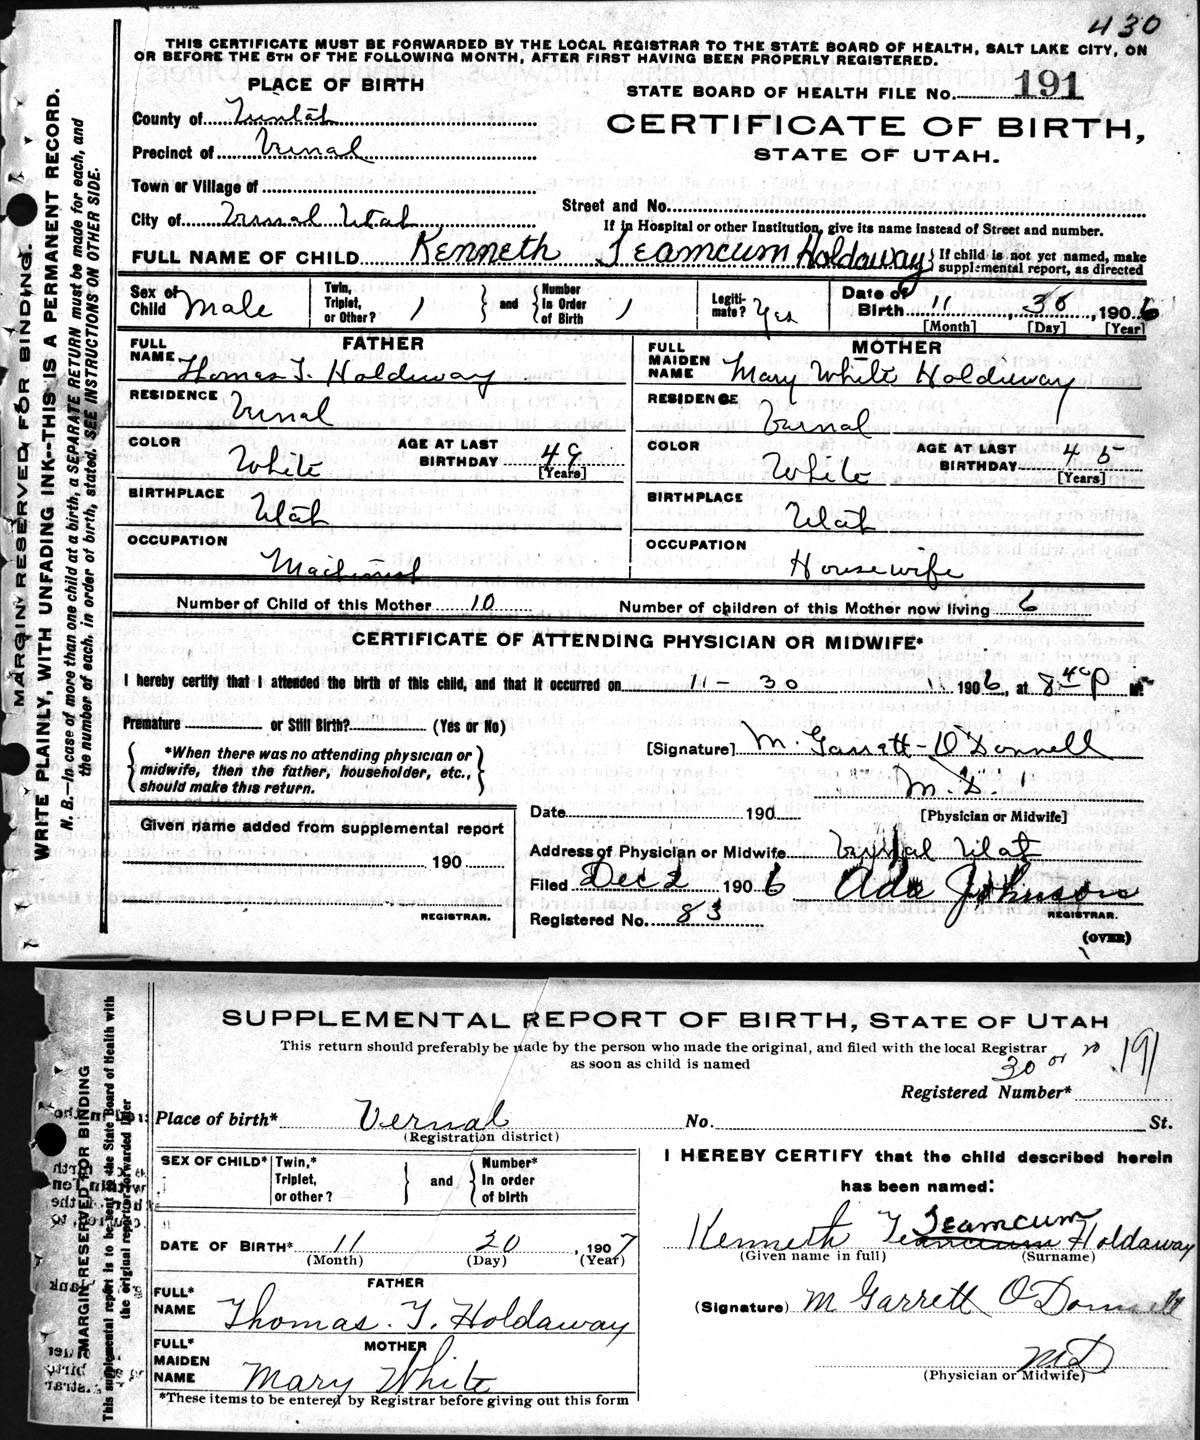 430
THIS CERTIFICATE MUST BE FORWARDED BY THE LOCAL REGISTRAR TO THE STATE BOARD OF HEALTH, SALT LAKE CITY, ON
OR BEFORE THE 5TH OF THE FOLLOWING MONTH, AFTER FIRST HAVING BEEN PROPERLY REGISTERED.
PLACE OF BIRTH
STATE BOARD OF HEALTH FILE No. 191
County of Uintah
CERTIFICATE OF BIRTH,
STATE OF UTAH.
Precinct of Vernal
Town or Village of
Street and No.
City of Vernal Utah
If in Hospital or other Institution, give its name instead of Street and number.
FULL NAME OF CHILD Kenneth Teamcum Holdaway } If child is not yet named, make supplemental report, as directed
Sex of Child Male Twin, Triplet, or Other? 1 } and { Number In Order of Birth 1 Legiti-mate? Yes Date of Birth 11, 30, 1906
[Month] [Day] [Year]
FATHER
FULL NAME Thomas T. Holdaway
RESIDENCE Vernal
COLOR White AGE AT LAST BIRTHDAY 49 [Years]
BIRTHPLACE Utah
OCCUPATION Machinist
MOTHER
FULL MAIDEN NAME Mary White Holdaway
RESIDENCE Vernal
COLOR White AGE AT LAST BIRTHDAY 45 [Years]
BIRTHPLACE Utah
OCCUPATION Housewife
Number of Child of this Mother 10 Number of children of this Mother now living 6
CERTIFICATE OF ATTENDING PHYSICIAN OR MIDWIFE*
I hereby certify that I attended the birth of this child, and that it occurred on 11-30 1906, at 8 40 P M
Premature or Still Birth? (Yes or No)
{ *When there was no attending physician or midwife, then the father, householder, etc., should make this return. }
[Signature] M. Garrett-O'Donnell
M.D.
[Physician or Midwife]
Date 190
Given name added from supplemental report
190
REGISTRAR.
Address of Physician or Midwife Vernal Utah
Filed Dec 2 1906 Ada Johnson
REGISTRAR.
Registered No. 83
(OVER)
MARGIN RESERVED FOR BINDING.
WRITE PLAINLY, WITH UNFADING INK--THIS IS A PERMANENT RECORD.
N. B.—In case of more than one child at a birth, a SEPARATE RETURN must be made for each, and
the number of each, in order of birth, stated. SEE INSTRUCTIONS ON OTHER SIDE.
SUPPLEMENTAL REPORT OF BIRTH, STATE OF UTAH
This return should preferably be made by the person who made the original, and filed with the local Registrar
as soon as child is named
30 or 20 191
Registered Number*
Place of birth* Vernal No. St.
(Registration district)
SEX OF CHILD* Twin,* Triplet, or other? } and { Number* In order of birth
DATE OF BIRTH* 11 20, 1907
(Month) (Day) (Year)
FATHER
FULL* NAME Thomas. T. Holdaway
MOTHER
FULL* MAIDEN NAME Mary White
*These items to be entered by Registrar before giving out this form
I HEREBY CERTIFY that the child described herein
has been named:
Teamcum
Kenneth Holdaway
(Given name in full) (Surname)
(Signature) M Garrett O'Donnell
MD
(Physician or Midwife)
MARGIN RESERVED FOR BINDING
This supplemental report is to be sent to the State Board of Health with
the original report or forwarded later